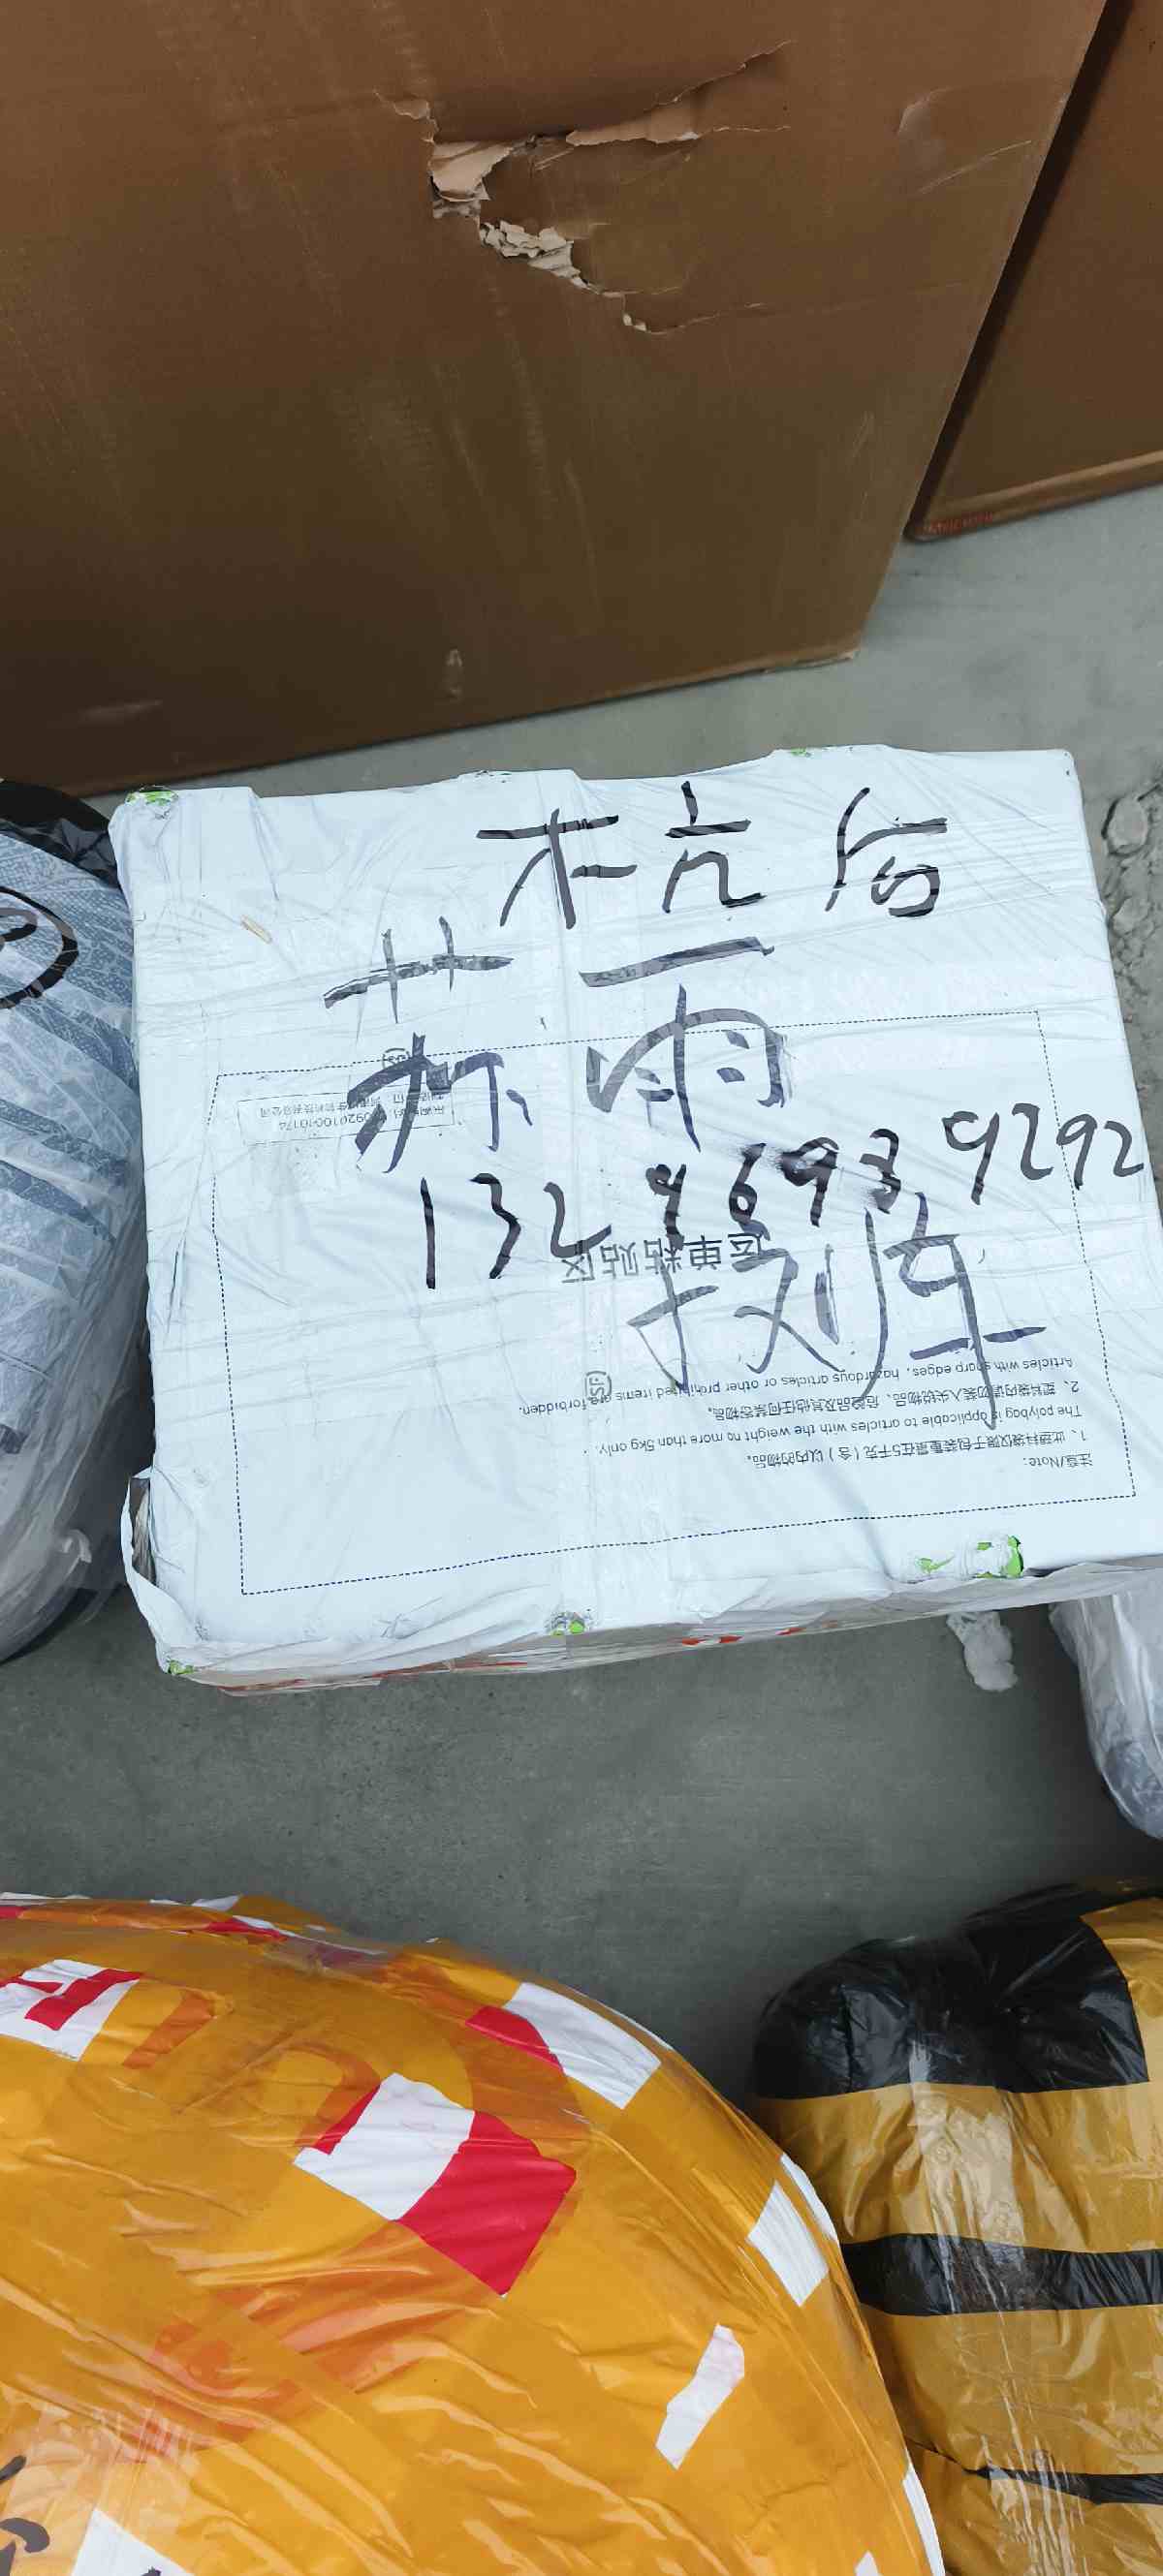 杭后
苏雨
132 9693 9292
运单粘贴区
注意/Note:
1、此塑料袋仅限于包装重量在5千克（含）以内的物品。
The polybag is applicable to articles with the weight no more than 5kg only.
2、塑料袋内请勿装入尖锐物品、危险品及其他任何禁寄物品。
Articles with sharp edges, hazardous articles or other prohibited items are forbidden.
SF